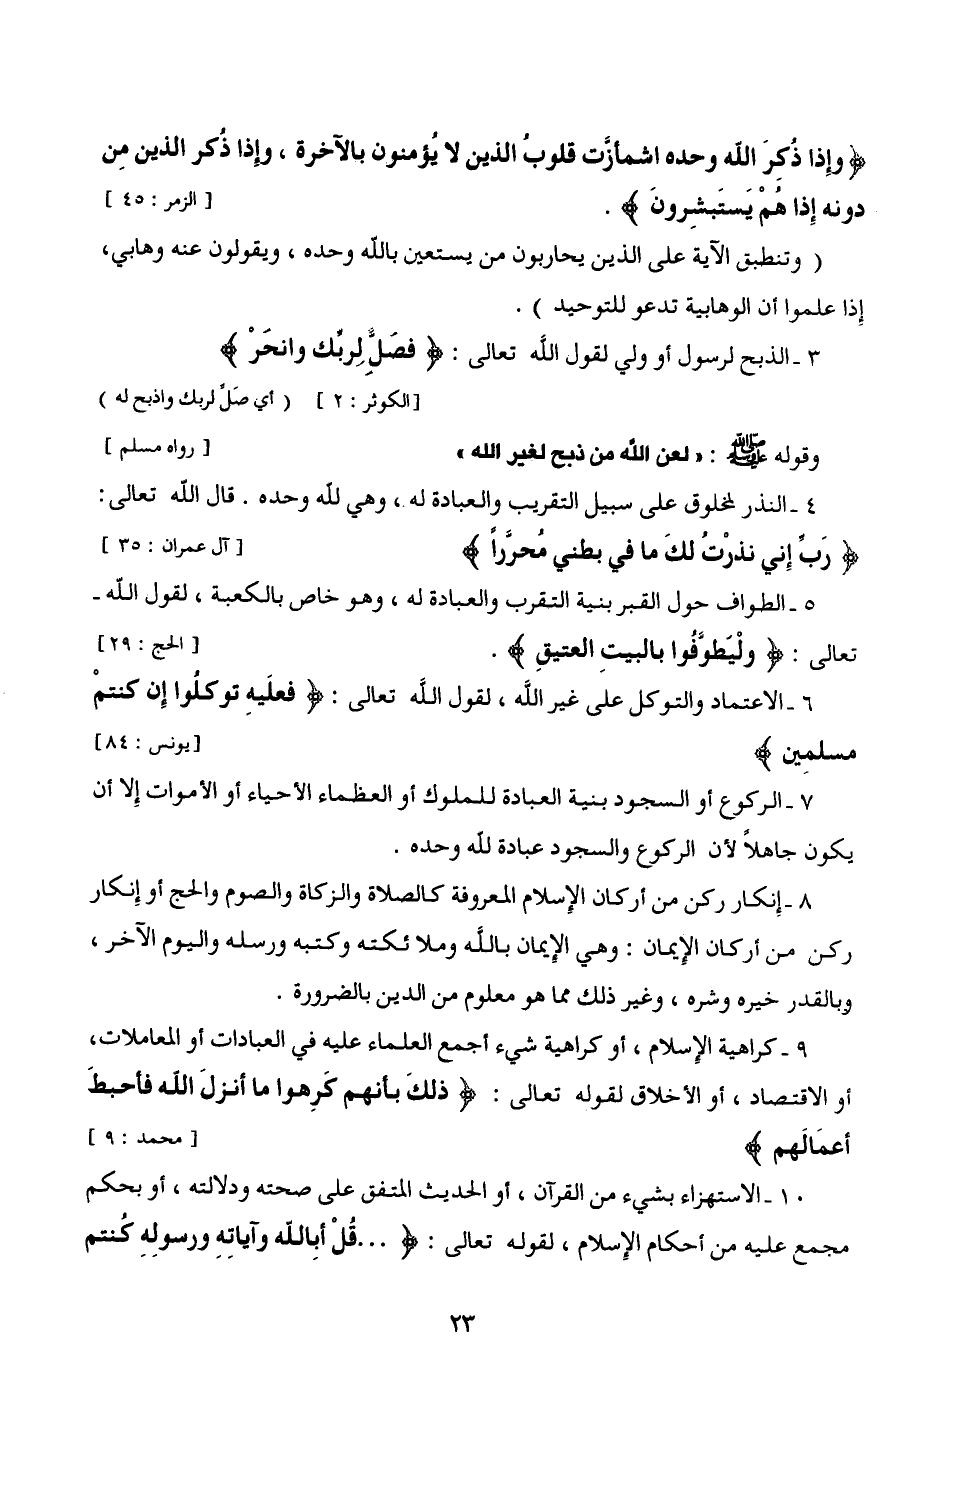 ﴿ وإذا ذُكِرَ اللّه وحده اشمأزَّت قلوبُ الذين لا يُؤمنون بالآخرة ، وإذا ذُكر الذين مِن
دونه إذا هُمْ يَستَبشِرونَ ﴾ . [ الزمر : ٤٥ ]
( وتنطبق الآية على الذين يحاربون من يستعين باللّه وحده ، ويقولون عنه وهابي،
إذا علموا أن الوهابية تدعو للتوحيد ) .
٣ ـ الذبح لرسول أو ولي لقول اللَّه تعالى : ﴿ فصَلِّ لِربِّك وانحَرْ ﴾
[ الكوثر : ٢ ] ( أي صَلِّ لربك واذبح له )
وقوله ﷺ : « لعن اللَّه من ذبح لغير الله » [ رواه مسلم ]
٤ ـ النذر لمخلوق على سبيل التقريب والعبادة له ، وهي للّه وحده . قال اللّه تعالى :
﴿ رَبِّ إني نذرْتُ لكَ ما في بطني مُحرَّراً ﴾ [ آل عمران : ٣٥ ]
٥ ـ الطواف حول القبر بنية التقرب والعبادة له ، وهو خاص بالكعبة ، لقول اللّه ـ
تعالى : ﴿ ولْيَطوَّفُوا بالبيتِ العتيقِ ﴾ . [ الحج : ٢٩ ]
٦ ـ الاعتماد والتوكل على غير اللَّه ، لقول اللَّه تعالى : ﴿ فعلَيهِ توكلُوا إن كنتمْ
مسلمِين ﴾ [ يونس : ٨٤ ]
٧ ـ الركوع أو السجود بنية العبادة للملوك أو العظماء الأحياء أو الأموات إلا أن
يكون جاهلاً لأن الركوع والسجود عبادة للّه وحده .
٨ ـ إنكار ركن من أركان الإسلام المعروفة كالصلاة والزكاة والصوم والحج أو إنكار
ركن من أركان الإيمان : وهي الإيمان باللَّه وملائكته وكتبه ورسله واليوم الآخر ،
وبالقدر خيره وشره ، وغير ذلك مما هو معلوم من الدين بالضرورة .
٩ ـ كراهية الإسلام ، أو كراهية شيء أجمع العلماء عليه في العبادات أو المعاملات،
أو الاقتصاد ، أو الأخلاق لقوله تعالى : ﴿ ذلكَ بأنهم كَرِهوا ما أنزلَ اللّه فأحبطَ
أعمَالَهم ﴾ [ محمد : ٩ ]
١٠ ـ الاستهزاء بشيء من القرآن ، أو الحديث المتفق على صحته ودلالته ، أو بحكم
مجمع عليه من أحكام الإسلام ، لقوله تعالى : ﴿ ... قُلْ أبِاللّه وآياتِهِ ورسولِهِ كُنتم
٢٣